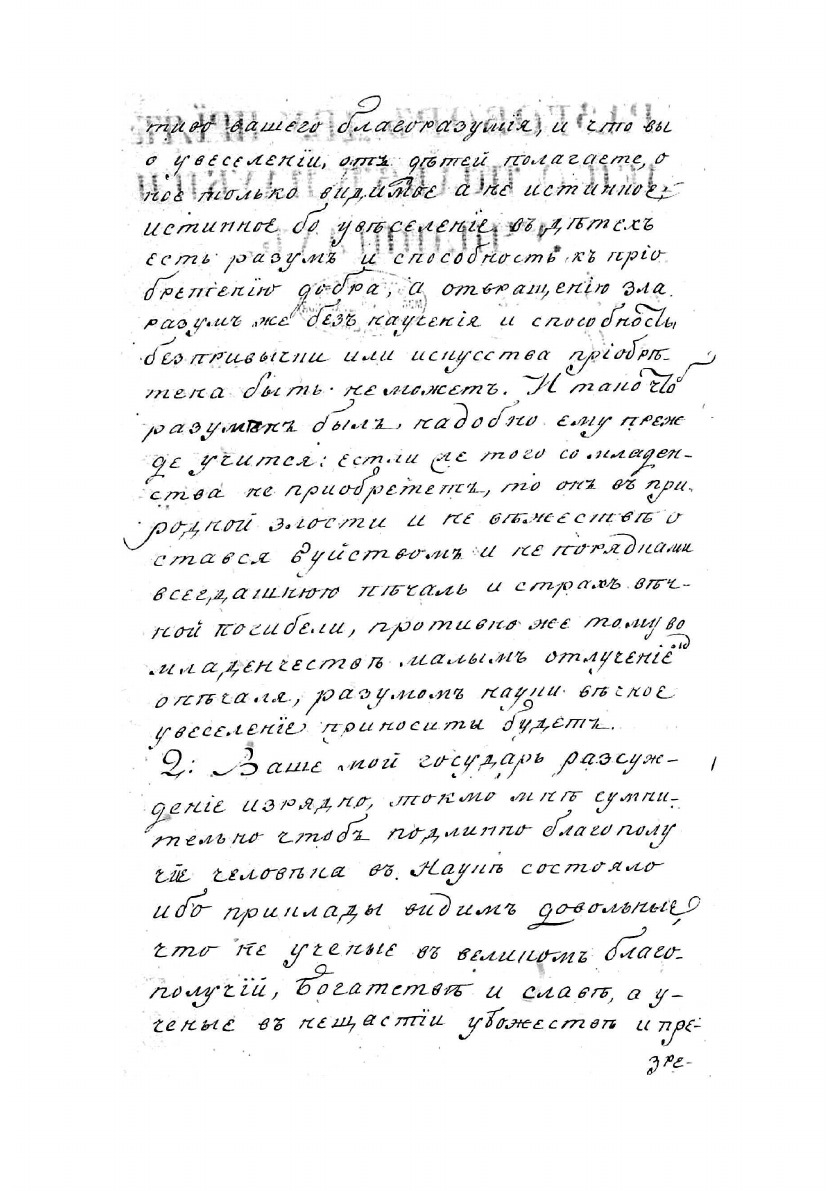 тиво вашего благоразумія, и что вы
о увеселеніи, отъ дѣтей полагаете, о
ное только видимое а не истинное,
истинное бо увѣселеніе въ дѣтехъ
есть разумъ и способность къ пріо
брѣтению добра, а отвращенію зла
разумъ же безъ наученія и способность
безпривычки или искусства пріобрѣ-
тена быть неможетъ. И тако чтоб
разуменъ былъ, надобно ему преж
де учится: естли же того со младен-
ства не приобрететъ, то онъ въ при-
родной злости и не вѣжествѣ о
стався буйствомъ и непорядками
всегдашнюю пѣчаль и страхъ вѣч-
ной погибели, противно же тому во
младенчествѣ малымъ отлученіемъ
опѣчаля, разумомъ науки вѣчное
увеселеніе приносити будетъ.
2: Ваше мой государь разсуж-
деніе изрядно, токмо мнѣ сумни-
тельно чтобъ подлинно благополу
чіе человѣка въ Наукѣ состояло
ибо приклады видимъ довольные
что не ученые въ великомъ благо-
получій, Богатствѣ и славѣ, а у-
ченые въ нещастіи убожествѣ и пре-
зре-